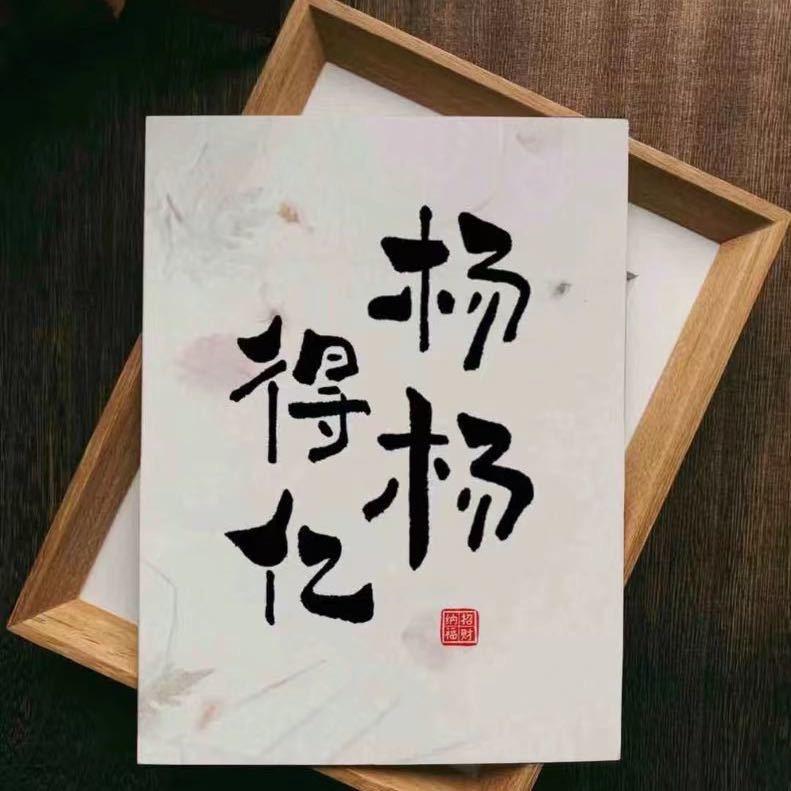 杨杨
得亿
招财
纳福